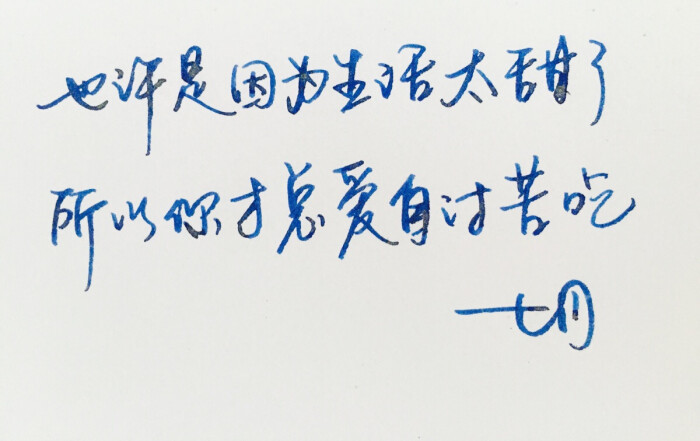 也许是因为生活太甜了
所以你才总爱自讨苦吃
七月